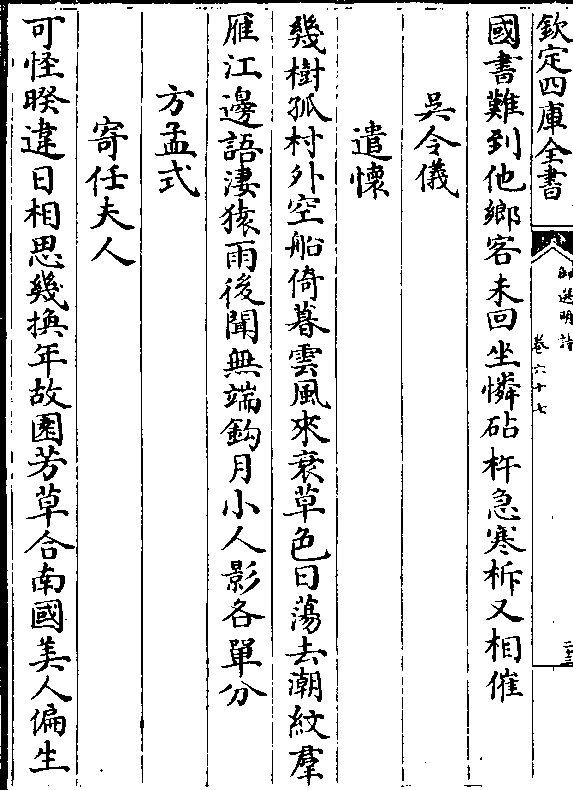 欽定四庫全書
御選明詩
卷六十七
國書難到他鄉客未回坐憐砧杵急寒柝又相催
吳令儀
遣懷
幾樹孤村外空船倚暮雲風來衰草色日蕩去潮紋羣
雁江邊語淒猿雨後聞無端鈎月小人影各單分
方孟式
寄任夫人
可怪暌違日相思幾換年故園芳草合南國美人偏生